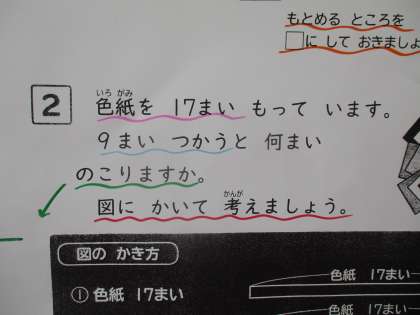 もとめる ところを
□に して おきましょ
2
いろ がみ
色紙を 17まい もって います。
9まい つかうと 何まい
のこりますか。
かんが
図に かいて 考えましょう。
図の かき方
① 色紙 17まい
色紙 17まい
色紙 17まい